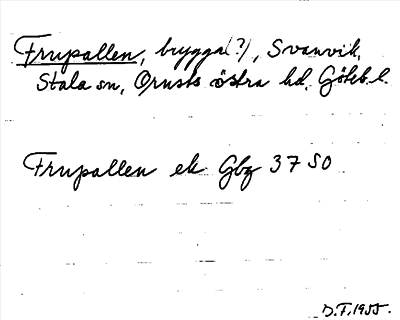 Frupallen, brygga(?), Svanvik,
Stala sn, Orusts östra hd. Göteb. l.
Frupallen ek Gbg 37 SO
D.F. 1955.